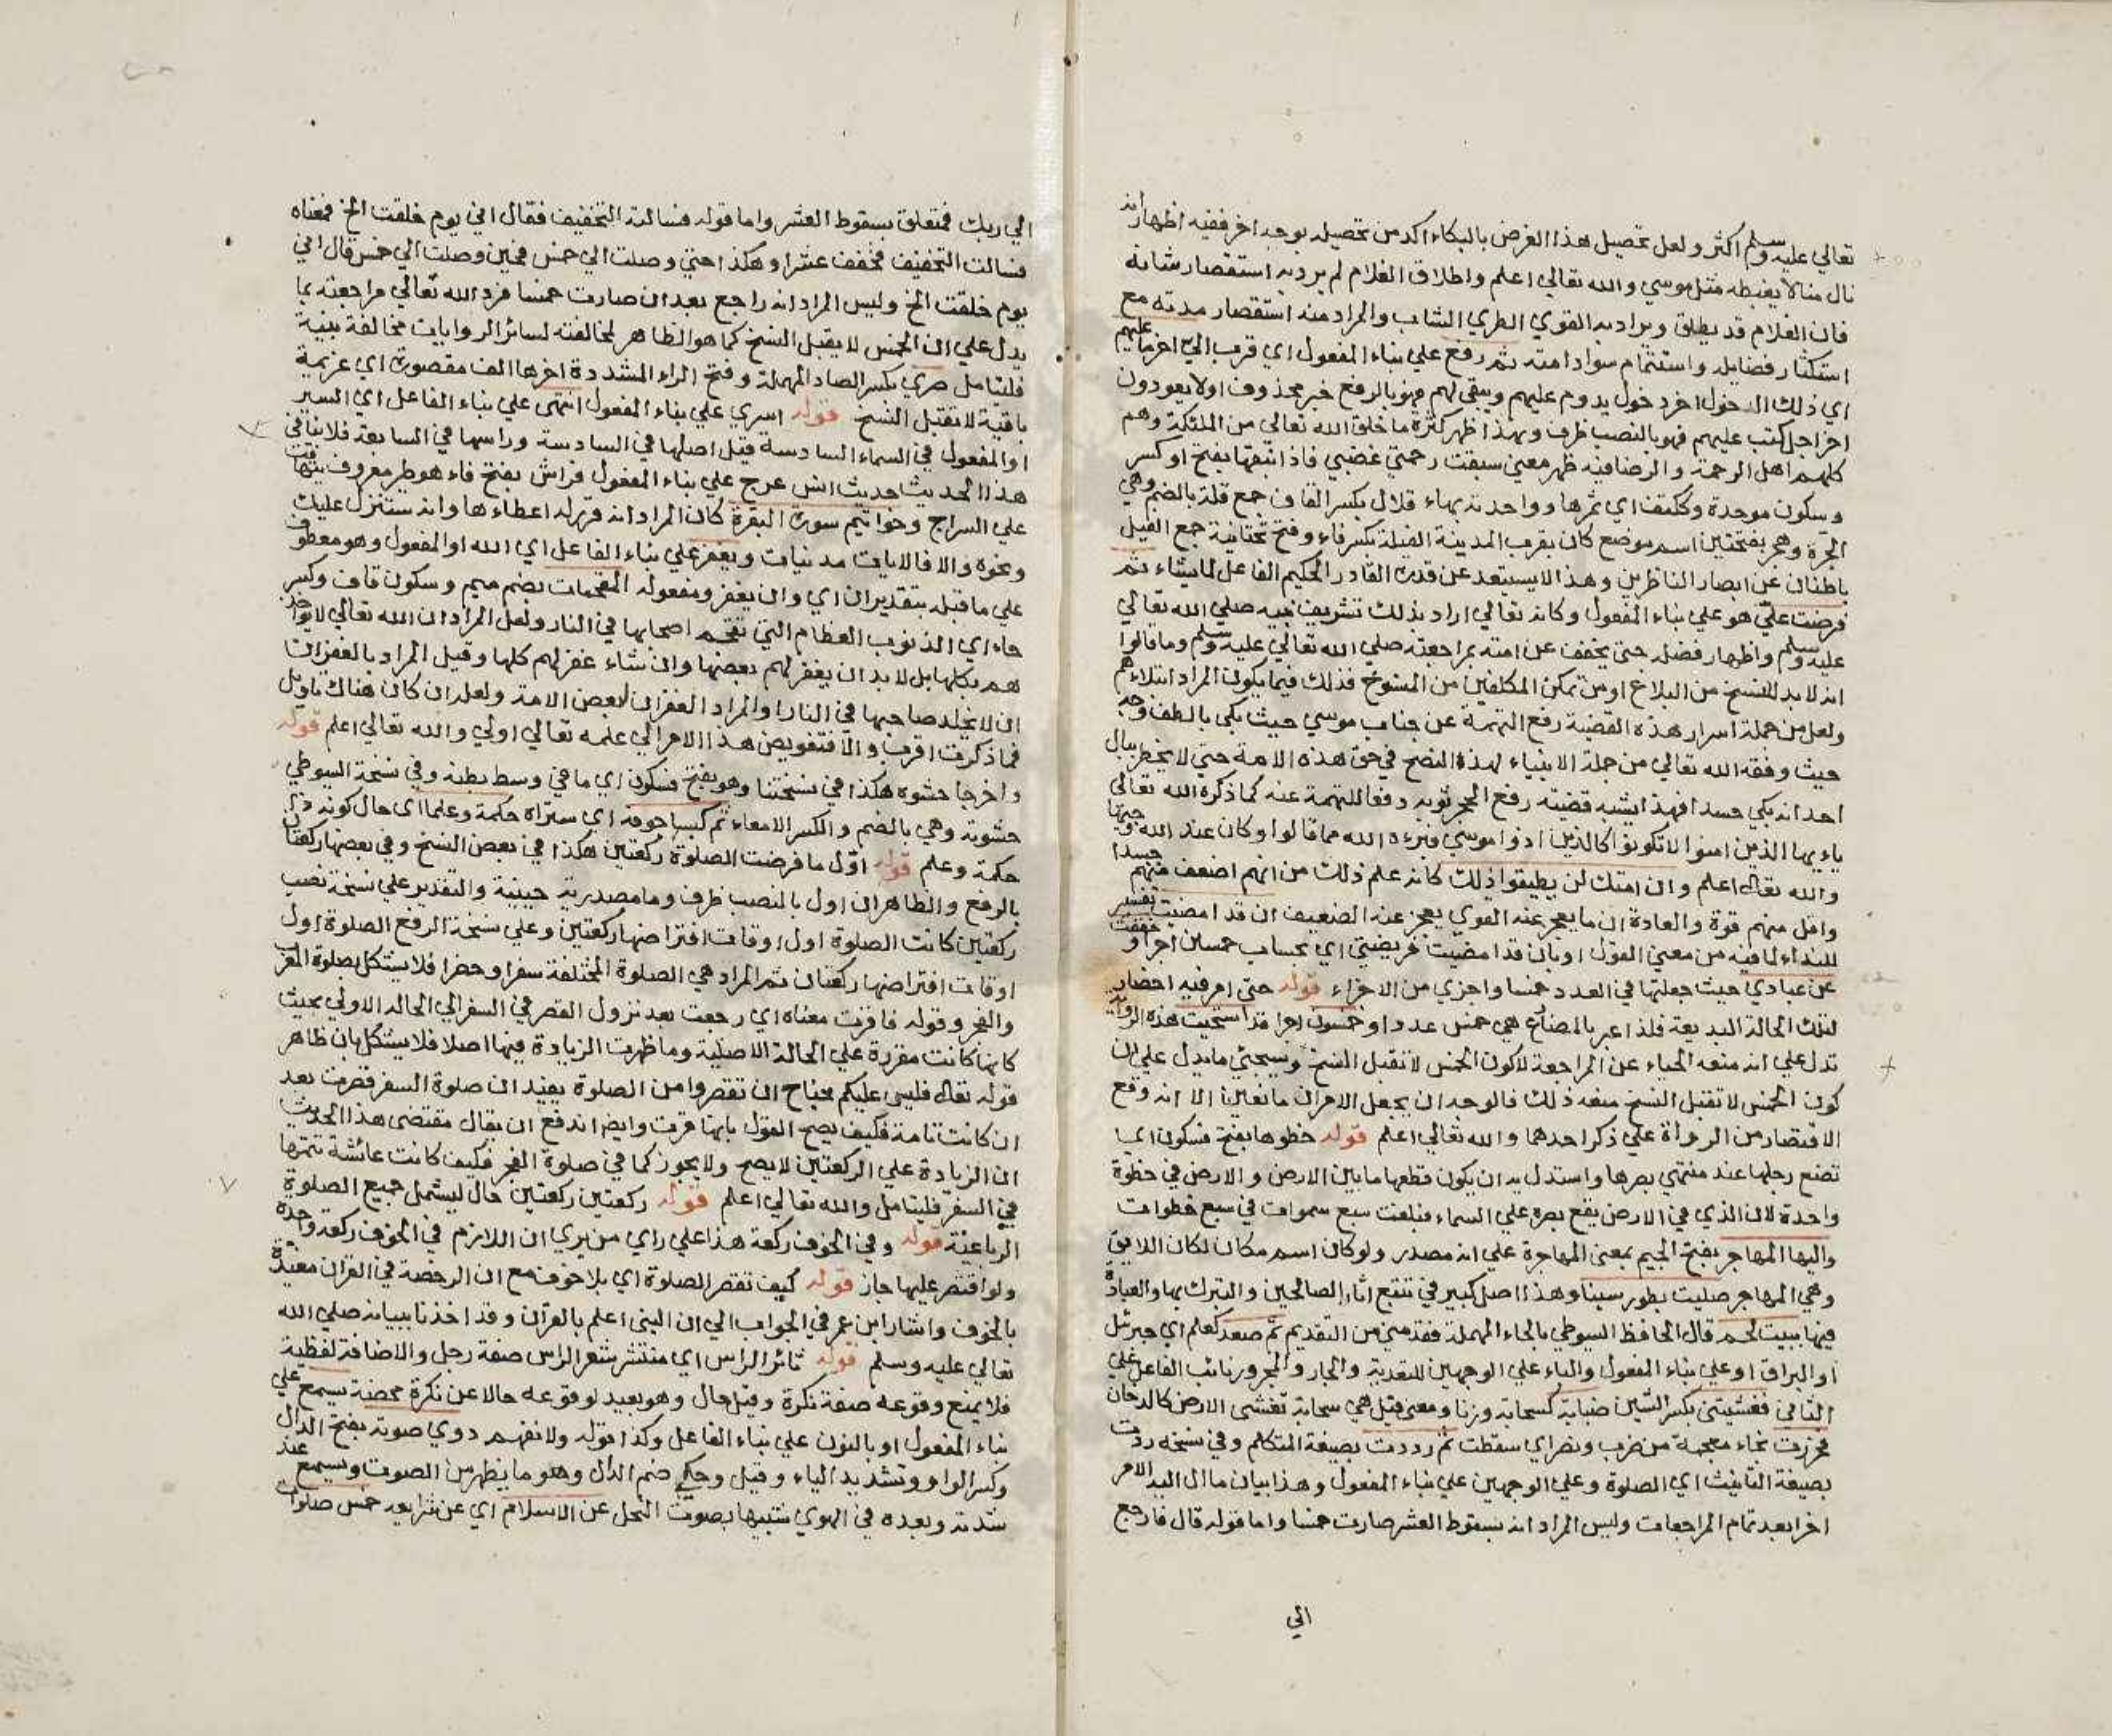 تعالي عليه وسلم اكثر ولعل تحصيل هذا الغرض بالبكاء اكد من تحصيله بوجه اخر ففيه اظهار انه
نال منالا يغبطه مثل موسي والله تعالي اعلم واطلاق الغلام لم يرد به استقصار شانه
فان الغلام قد يطلق ويراد به القوي الطري الشاب والمراد منه استقصار مدته مع
استكثار فضايله واستتمام سواد امته ثم رفع علي بناء المفعول اي قرب الي اخر ما عليهم
اي ذلك الدخول اخر دخول يدوم عليهم ويبقي لهم فهو بالرفع خبر محذوف اولا يعودون
اخر اجل كتب عليهم فهو بالنصب ظرف وبهذا ظهر كثرة ما خلق الله تعالي من الملئكة وهم
كلهم اهل الرحمة والرضا فبه ظهر معني سبقت رحمتي غضبي فاذا نبقها بفتح او كسر
وسكون موحدة وككتف اي ثمرها وواحدته بهاء قلال بكسر القاف جمع قلة بالضم وهي
الجرة وهجر بفتحتين اسم موضع كان بقرب المدينة الفيلة بكسر فاء وفتح تحتانية جمع الفيل
باطنان عن ابصار الناظرين وهذا لا يستبعد عن قدرة القادر الحكيم الفاعل لما يشاء ثم
فرضت علي هو علي بناء المفعول وكانه تعالي اراد بذلك تشريف نبيه صلي الله تعالي
عليه وسلم واظهار فضله حتي يخفف عن امته بمراجعته صلي الله تعالي عليه وسلم وما قالوا
انه لا بد للنسخ من البلاغ او من تمكن المكلفين من المنسوخ فذلك فيما يكون المراد ابتلاءهم
ولعل من جملة اسرار هذه القضية رفع التهمة عن جناب موسي حيث بكي بالطف وجه
حيث وفقه الله تعالي من جملة الانبياء لهذا النصح في حق هذه الامة حتي لا يخطر ببال
احد انه بكي حسدا فهذا يشبه قضية رفع الحجر ثوبه دفعا للتهمة عنه كما ذكره الله تعالي
ياءيها الذين امنوا لا تكونوا كالذين اذوا موسي فبرءه الله مما قالوا وكان عند الله وجيها
والله تعالى اعلم وان امتك لن يطيقوا ذلك كانه علم ذلك من انهم اضعف منهم جسدا
واقل منهم قوة والعادة ان ما يعجز عنه القوي يعجز عنه الضعيف ان قد امضيت تفسير
للنداء لما فيه من معني القول او بان قد امضيت فريضتي اي بحساب خمسين اجرا وخففت
عن عبادي حيث جعلتها في العدد خمسا واجزي من الاجزاء قوله حتي امر فيه احضار
لتلك الحالة البديعة فلذا عبر بالمضارع هي خمس عددا وخمسون اجرا قد استحييت هذه الرواية
تدل علي انه منعه الحياء عن المراجعة لا كون الخمس لا تقبل النسخ وسيجئي ما يدل علي ان
كون الخمس لا تقبل النسخ منعه ذلك فالوجه ان يجعل الامران مانعين الا انه وقع
الاقتصار من الرواة علي ذكر احدهما والله تعالي اعلم قوله خطوها بفتح فسكون اي
تضع رجلها عند منتهي بصرها واستدل به ان يكون قطعها ما بين الارض والارض في خطوة
واحدة لان الذي في الارض يقع بصره علي السماء فبلغت سبع سموات في سبع خطوات
واليها المهاجر بفتح الجيم بمعني المهاجرة علي انه مصدر ولو كان اسم مكان لكان اللايق
وهي المهاجر صليت بطور سينا وهذا اصل كبير في تتبع اثار الصالحين والتبرك بها والعبادة
فيها ببيت لحم قال الحافظ السيوطي بالحاء المهملة فقدمني من التقديم ثم صعد كعلم اي جبرئل
او البراق او علي بناء المفعول والباء علي الوجهين للتعدية والجار والمجرور نائب الفاعل علي
الثاني فغشيتني بكسر الشين ضبابة كسحابة وزنا ومعني قيل هي سحابة تغشي الارض كالدخان
فخررت بخاء معجمة من ضرب ونصر اي سقطت ثم رددت بصيغة المتكلم وفي نسخة ردت
بصيغة التانيث اي الصلوة وعلي الوجهين علي بناء المفعول وهذا بيان ما ال اليه الامر
اخرا بعد تمام المراجعات وليس المراد انه بسقوط العشر صارت خمسا واما قوله قال فارجع
الي
الي ربك فمتعلق بسقوط العشر واما قوله فسالته التخفيف فقال اني يوم خلقت الخ فمعناه
فسالت التخفيف فخفف عشرا وهكذا حتي وصلت الي خمس فحين وصلت الي خمس قال اني
يوم خلقت الخ وليس المراد انه راجع بعد ان صارت خمسا فرد الله تعالي مراجعته بما
يدل علي ان الخمس لا يقبل النسخ كما هو الظاهر لمخالفته لسائر الروايات مخالفة بينة
فليتامل صري بكسر الصاد المهملة وفتح الراء المشددة اخرها الف مقصورة اي عزيمة
باقية لا تقبل النسخ قوله اسري علي بناء المفعول انتهي علي بناء الفاعل اي السير
او المفعول في السماء السادسة قيل اصلها في السادسة وراسها في السابعة فلا ينافي
هذا الحديث حديث انس عرج علي بناء المفعول فراش بفتح فاء هو طير معروف يتهافت
علي السراج وخواتيم سورة البقرة كان المراد انه قرر له اعطاءها وانه ستنزل عليك
ونحوه والا فالايات مدنيات ويغفر علي بناء الفاعل اي الله او المفعول وهو معطوف
علي ما قبله بتقدير ان اي وان يغفر ومفعوله المقحمات بضم ميم وسكون قاف وكسر
حاء اي الذنوب العظام التي تقحم اصحابها في النار ولعل المراد ان الله تعالي لا يواخذ
هم بكلها بل لا بد ان يغفر لهم بعضها وان شاء غفر لهم كلها وقيل المراد بالغفران
ان لا يخلد صاحبها في النار او المراد الغفران لبعض الامة ولعله ان كان هناك تاويل
فما ذكرت اقرب والا فتفويض هذا الامر الي علمه تعالي اولي والله تعالي اعلم قوله
واخرجا حشوه هكذا في نسختنا وهو بفتح فسكون اي ما في وسط بطنه وفي نسخة السيوطي
حشوته وهي بالضم والكسر الامعاء ثم كبسا جوفه اي ستراه حكمة وعلما اي حال كونه ذا
حكمة وعلم قوله اوّل ما فرضت الصلوة ركعتين هكذا في بعض النسخ وفي بعضها ركعتان
بالرفع والظاهر ان اول بالنصب ظرف وما مصدرية حينية والتقدير علي نسخة نصب
ركعتين كانت الصلوة اول اوقات افتراضها ركعتين وعلي نسخة الرفع الصلوة اول
اوقات افتراضها ركعتان ثم المراد هي الصلوة المختلفة سفرا وحضرا فلا يشكل بصلوة المغرب
والفجر وقوله فاقرت معناه اي رجعت بعد نزول القصر في السفر الي الحالة الاولي بحيث
كانها كانت مقررة علي الحالة الاصلية وما ظهرت الزيادة فيها اصلا فلا يشكل بان ظاهر
قوله تعالى فليس عليكم جناح ان تقصروا من الصلوة يفيد ان صلوة السفر قصرت بعد
ان كانت تامة فكيف يصح القول بانها قرت وايضا اندفع ان يقال مقتضي هذا الحديث
ان الزيادة علي الركعتين لا يصح ولا يجوز كما في صلوة الفجر فكيف كانت عائشة تتمها
في السفر فليتامل والله تعالي اعلم قوله ركعتين ركعتين حال ليشمل جميع الصلوة
الرباعية قوله وفي الخوف ركعة هذا علي راي من يري ان اللازم في الخوف ركعة واحدة
ولو اقتصر عليها جاز قوله كيف تقصر الصلوة اي بلا خوف مع ان الرخصة في القران مقيدة
بالخوف واشار ابن عمر في الجواب الي ان النبي اعلم بالقران وقد اخذنا ببيانه صلي الله
تعالي عليه وسلم قوله ثائر الراس اي منتشر شعر الراس صفة رجل والاضافة لفظية
فلا يمنع وقوعه صفة نكرة وقيل حال وهو بعيد لوقوعه حالا عن نكرة محضة يسمع علي
بناء المفعول او بالنون علي بناء الفاعل وكذا قوله ولا نفهم دوي صوته بفتح الدال
وكسر الواو وتشديد الياء وقيل وحكي ضم الدال وهو ما يظهر من الصوت ويسمع عند
شدته وبعده في الهوي شبيها بصوت النحل عن الاسلام اي عن شرايعه خمس صلوات